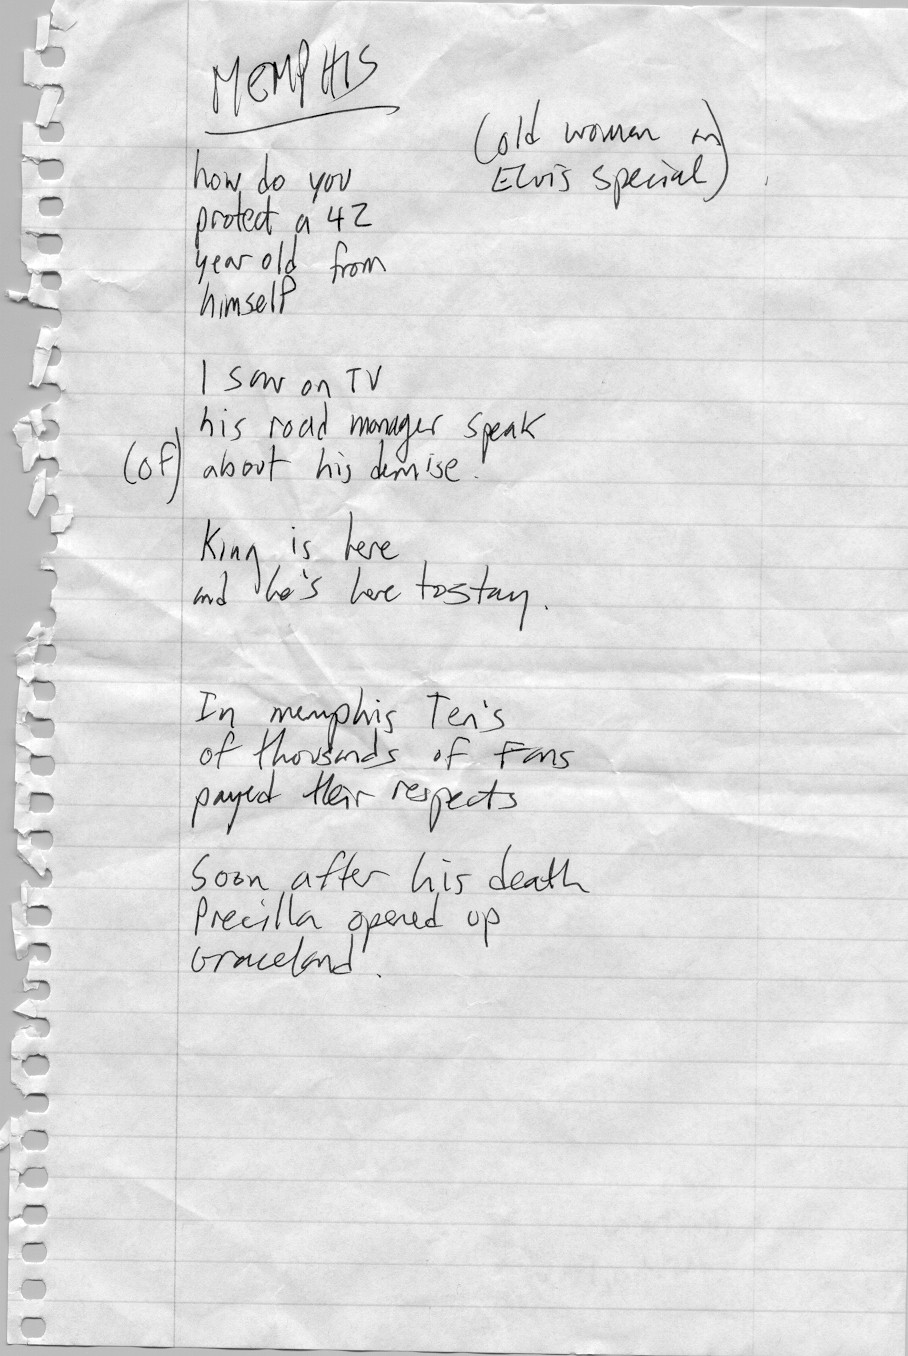 MEMPHIS
(old woman on
Elvis special)
how do you
protect a 42
year old from
himself
I saw on TV
his road manager speak
(of) about his demise.
King is here
and he's here to stay.
In memphis Ten's
of thousands of Fans
payed their respects
Soon after his death
Precilla opened up
Graceland.